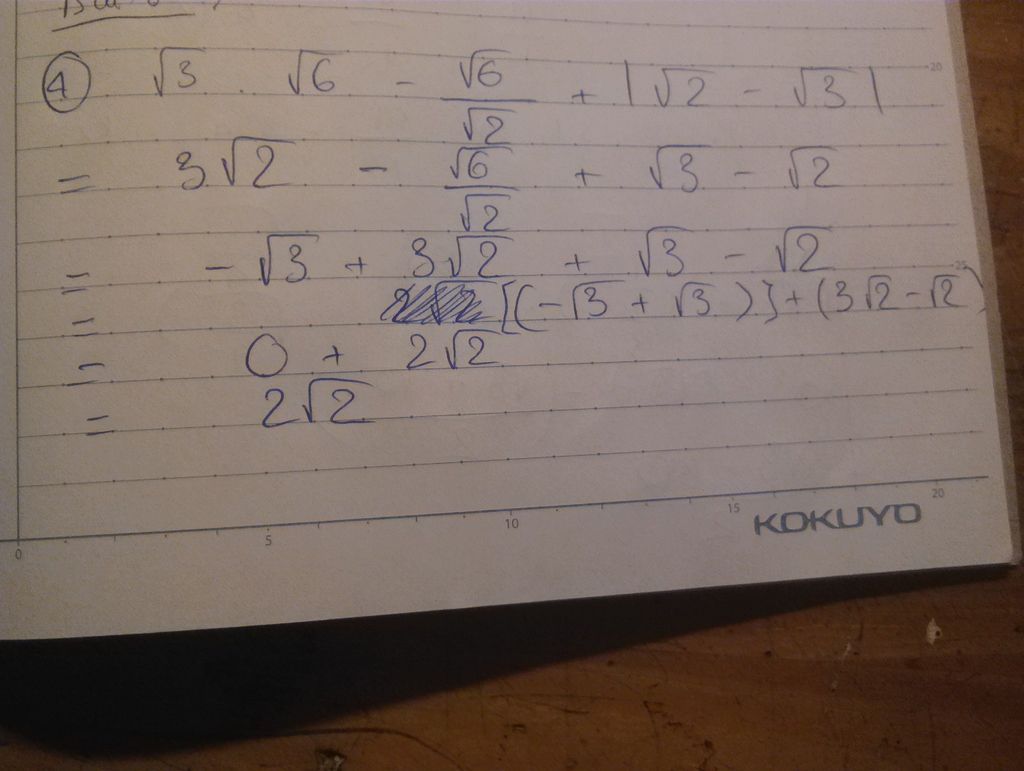 ④ √3 . √6 - √6/√2 + |√2 - √3|
= 3√2 - √6/√2 + √3 - √2
= - √3 + 3√2 + √3 - √2
= [(-√3 + √3)] + (3√2 - √2)
= 0 + 2√2
= 2√2
0 5 10 15 20
KOKUYO
20
25